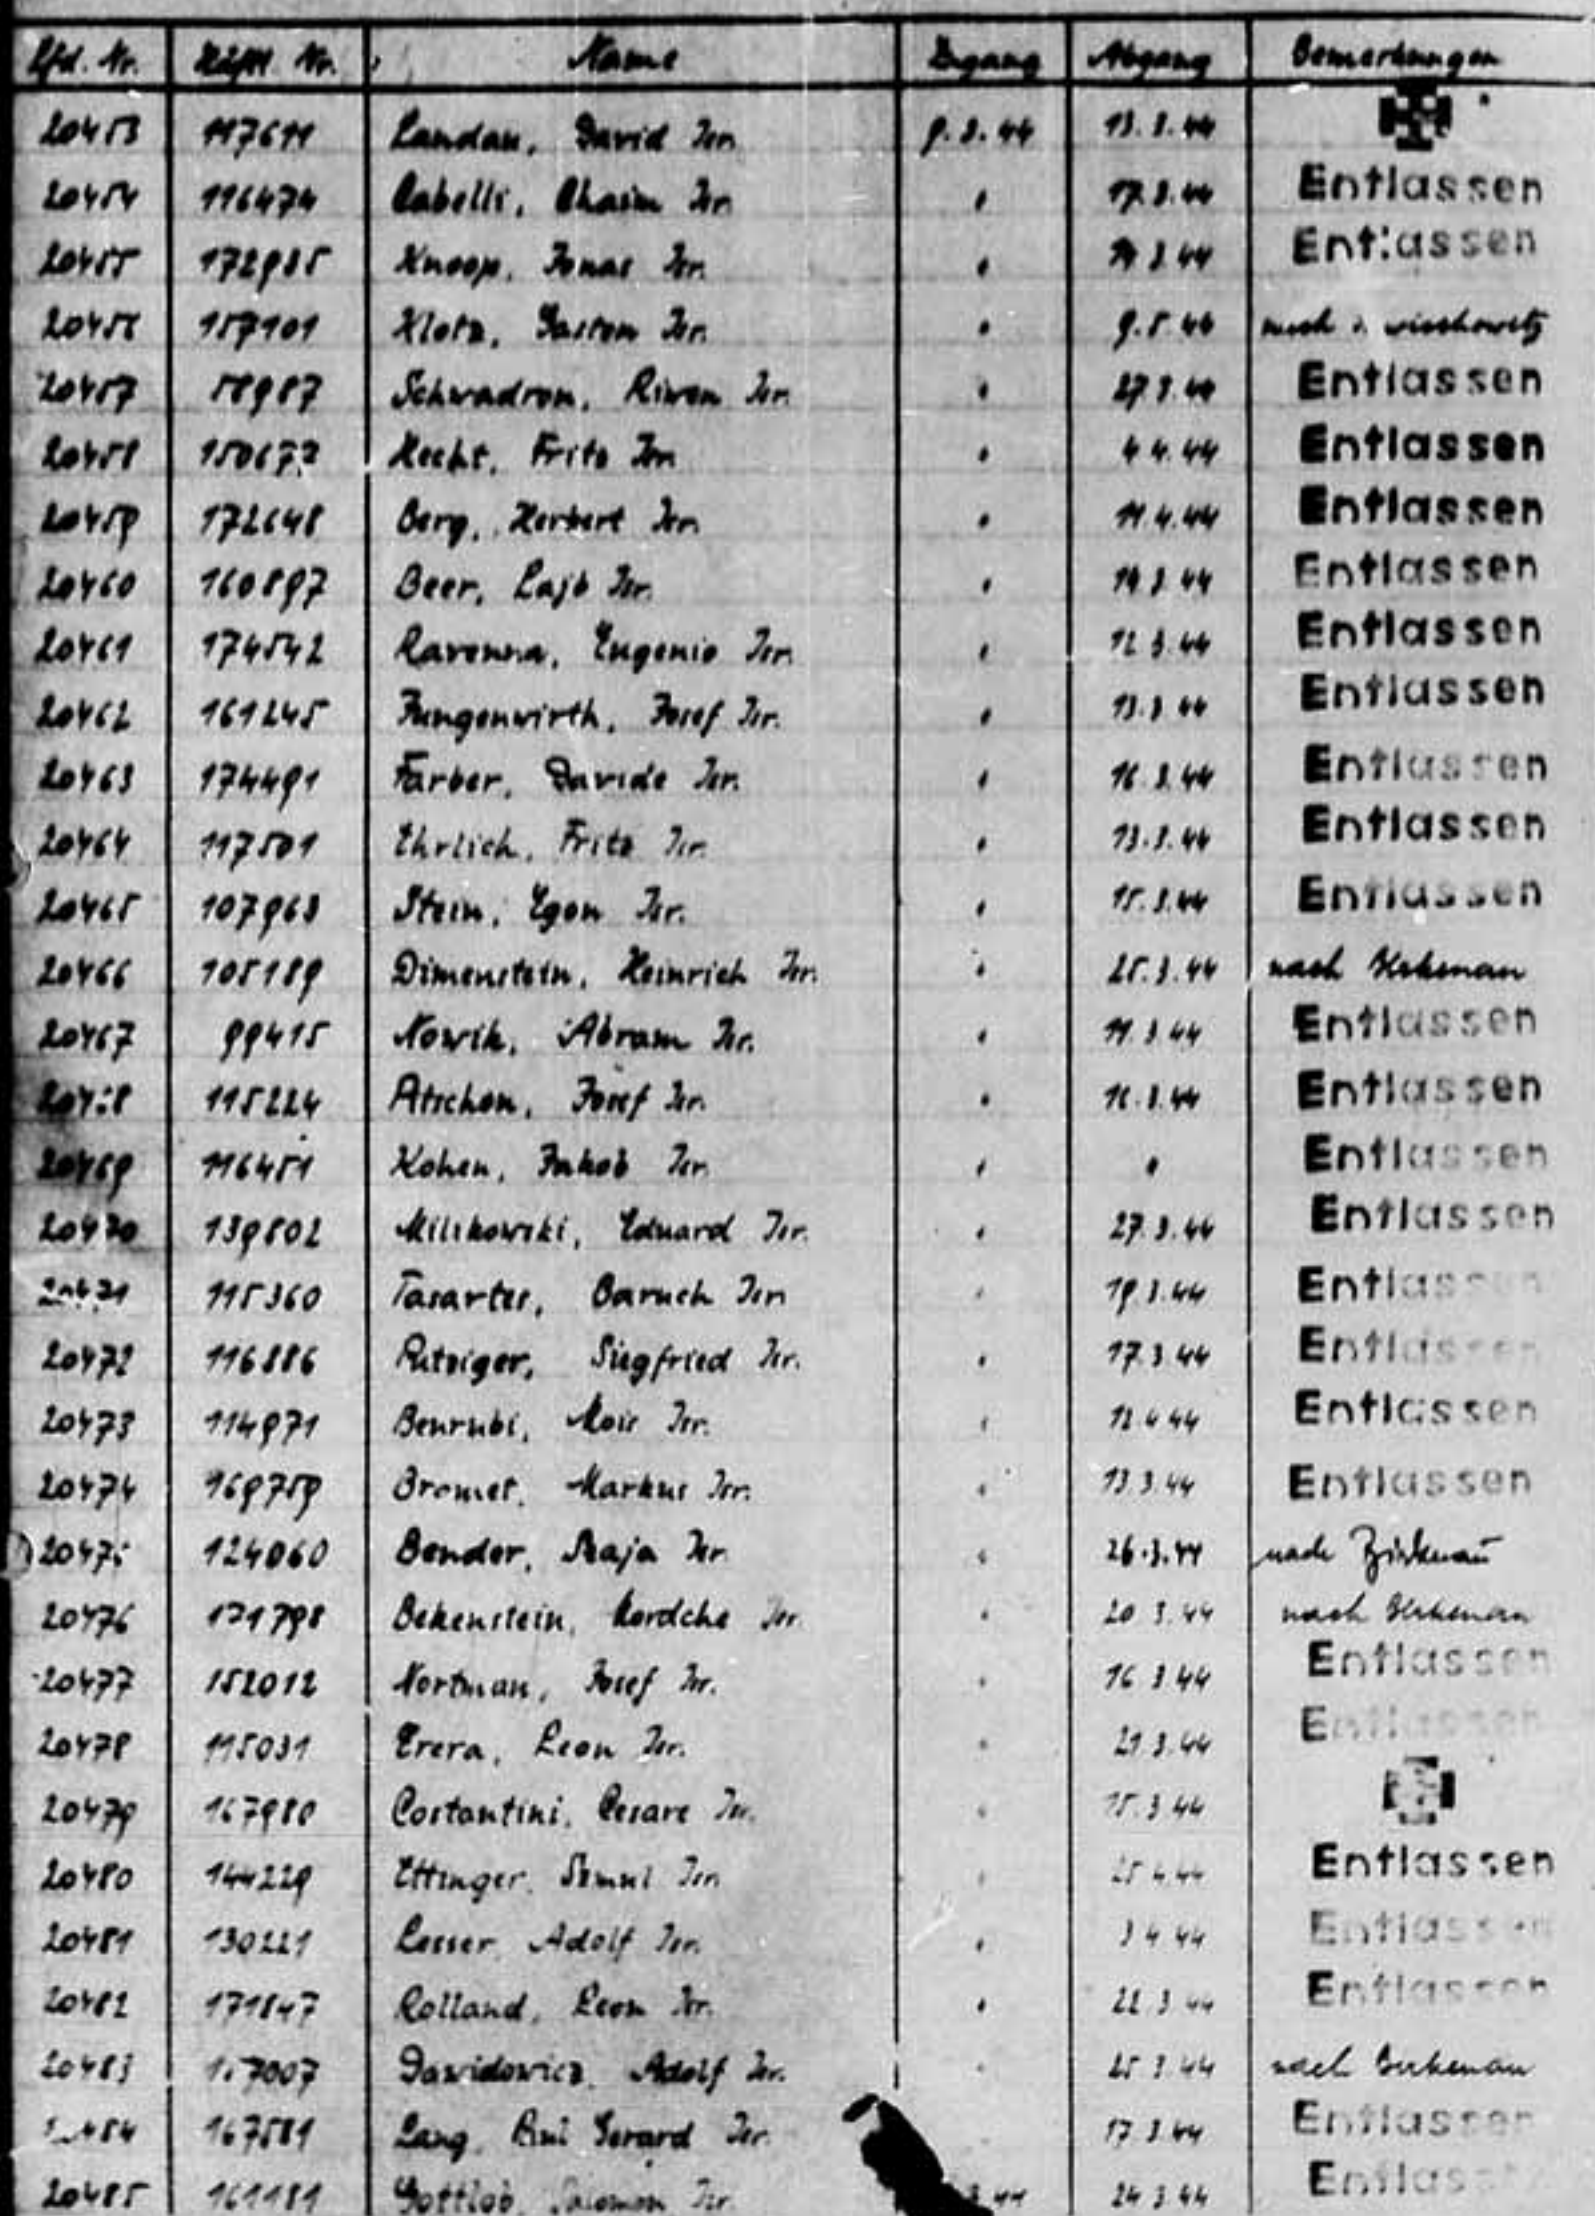 Lfd. Nr. Häftl. Nr. Name Zugang Abgang Bemerkungen
20453 117611 Landau, David Isr. 9.3.44 13.3.44
20454 116474 Cabelli, Chaim Isr. " 17.3.44 Entlassen
20455 172985 Knoop, Jonas Isr. " 3.44 Entlassen
20456 157101 Klotz, Gaston Isr. " 9.5.44 nach
20457 58987 Schwadron, Riwen Isr. " 27.3.44 Entlassen
20458 Hecht, Fritz Isr. " 4.4.44 Entlassen
20459 172648 Berg, Herbert Isr. " 11.4.44 Entlassen
20460 160897 Beer, Lajb Isr. " 3.44 Entlassen
20461 174542 Ravenna, Eugenio Isr. " 12.3.44 Entlassen
20462 161245 Jungenwirth, Josef Isr. " 13.3.44 Entlassen
20463 174491 Farber, Davide Isr. " 16.3.44 Entlassen
20464 117501 Ehrlich, Fritz Isr. " 13.3.44 Entlassen
20465 107963 Stein, Egon Isr. " 15.3.44 Entlassen
20466 105189 Dimenstein, Heinrich Isr. " 25.3.44 nach Birkenau
20467 99415 Nowik, Abram Isr. " 11.3.44 Entlassen
115224 Atschon, Josef Isr. " 16.3.44 Entlassen
20469 116451 Kohen, Jakob Isr. " " Entlassen
20470 139802 Milikowski, Eduard Isr. " 27.3.44 Entlassen
20471 115360 Tasartes, Baruch Isr. " 19.3.44 Entlassen
20472 116886 Siegfried Isr. " 17.3.44 Entlassen
20473 114971 Benrubi, Mois Isr. " 12.4.44 Entlassen
20474 169759 Bromet, Markus Isr. " 13.3.44 Entlassen
20475 124060 Bender, Isr. " 26.3.44 nach Birkenau
20476 Bekenstein, Mordcha Isr. " 20.3.44 nach Birkenau
20477 152012 Nortman, Josef Isr. " 16.3.44 Entlassen
20478 115031 Erera, Leon Isr. " 21.3.44 Entlassen
20479 167980 Costantini, Cesare Isr. " 15.3.44
20480 144229 Ettinger, Isr. " 25.4.44 Entlassen
20481 130221 Lesser, Adolf Isr. " 3.4.44 Entlassen
20482 171847 Rolland, Leon Isr. " 22.3.44 Entlassen
20483 Dawidowicz, Adolf Isr. " 25.3.44 nach Birkenau
167581 Lang, Gerard Isr. 17.3.44 Entlassen
20485 161181 Gottlob, Salomon Isr. 24.3.44 Entlassen